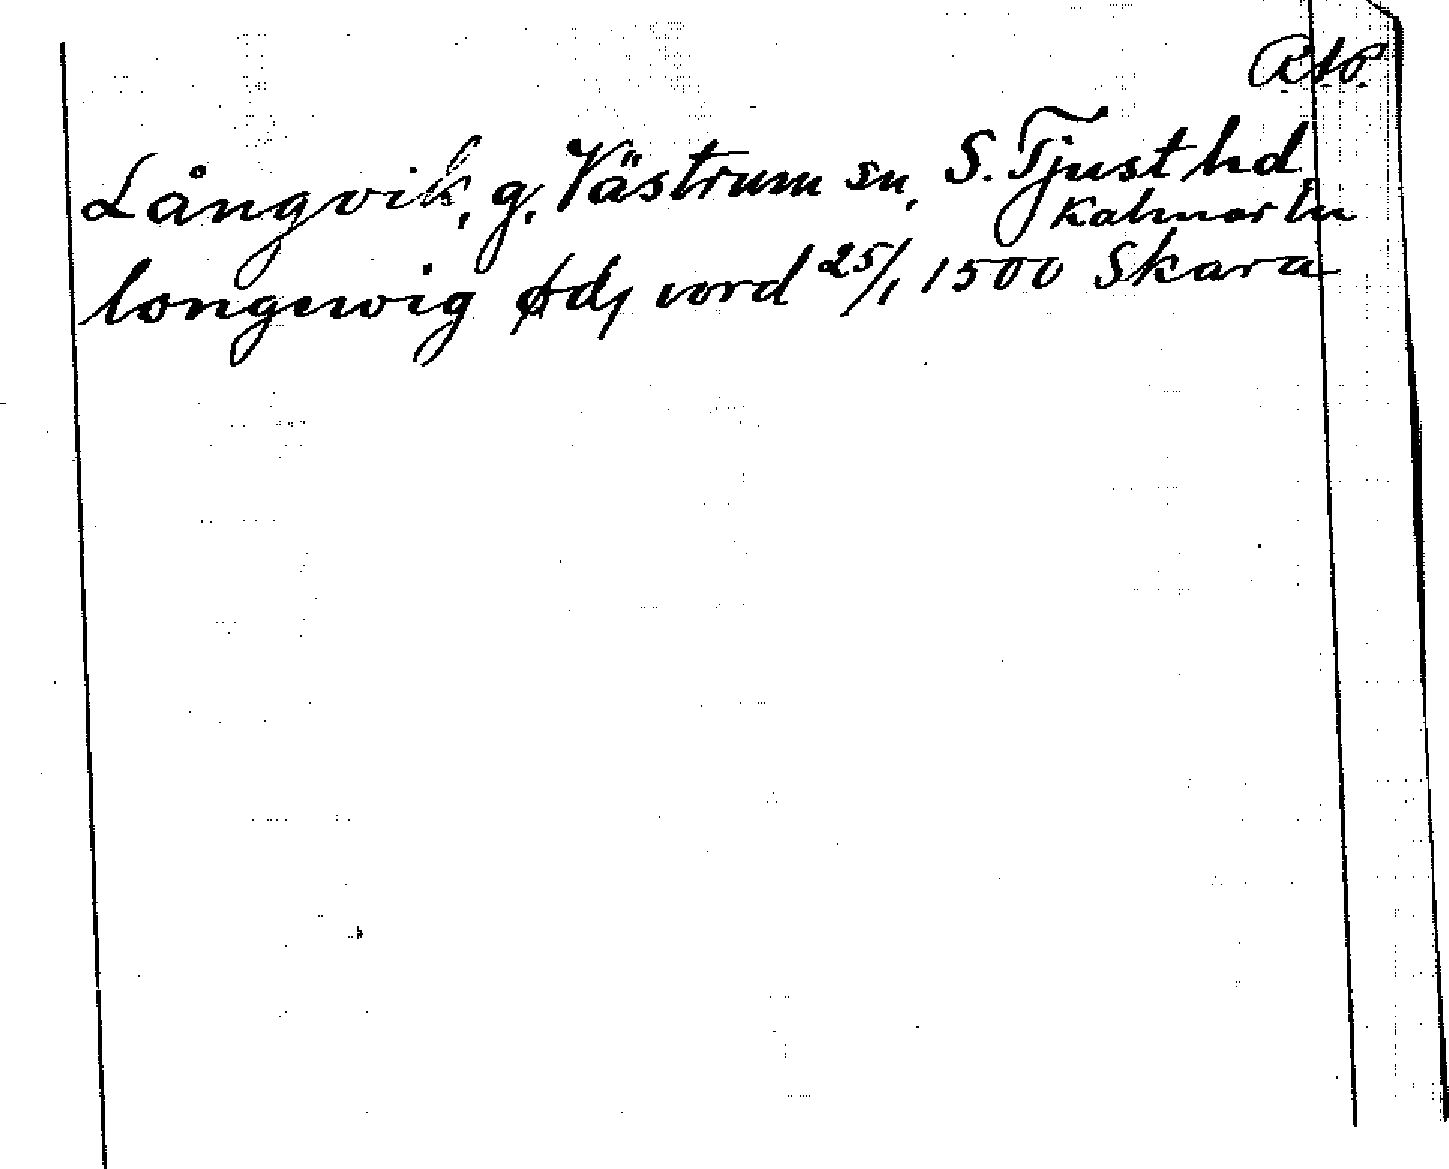 RAP.
Långvik, g. Västrum sn, S. Tjust hd
Kalmar ln
longewig
vord 25/1 1500 Skara